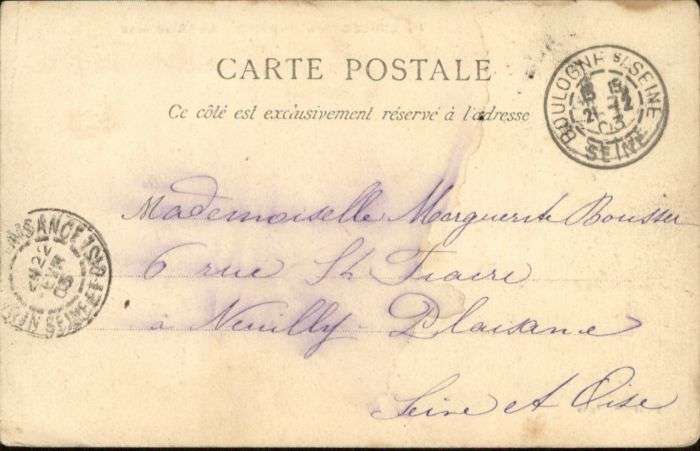 CARTE POSTALE
Ce côté est exclusivement réservé à l'adresse
BOULOGNE S/SEINE
SEINE
Mademoiselle Marguerite
6 rue St Fiacre
à Neuilly-Plaisance
Seine et Oise